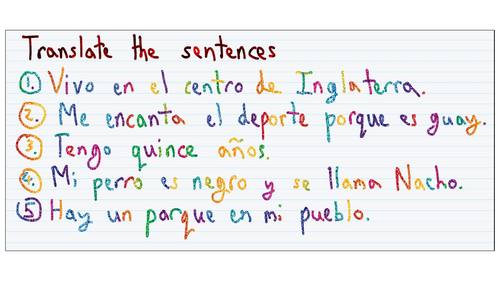 Translate the sentences
1. Vivo en el centro de Inglaterra.
2. Me encanta el deporte porque es guay.
3. Tengo quince años.
4. Mi perro es negro y se llama Nacho.
5 Hay un parque en mi pueblo.